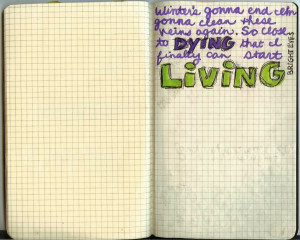 Winter's gonna end I'm
gonna clean these
veins again. So close
to DYING that I
finally can start
LIVING
BRIGHT EYES